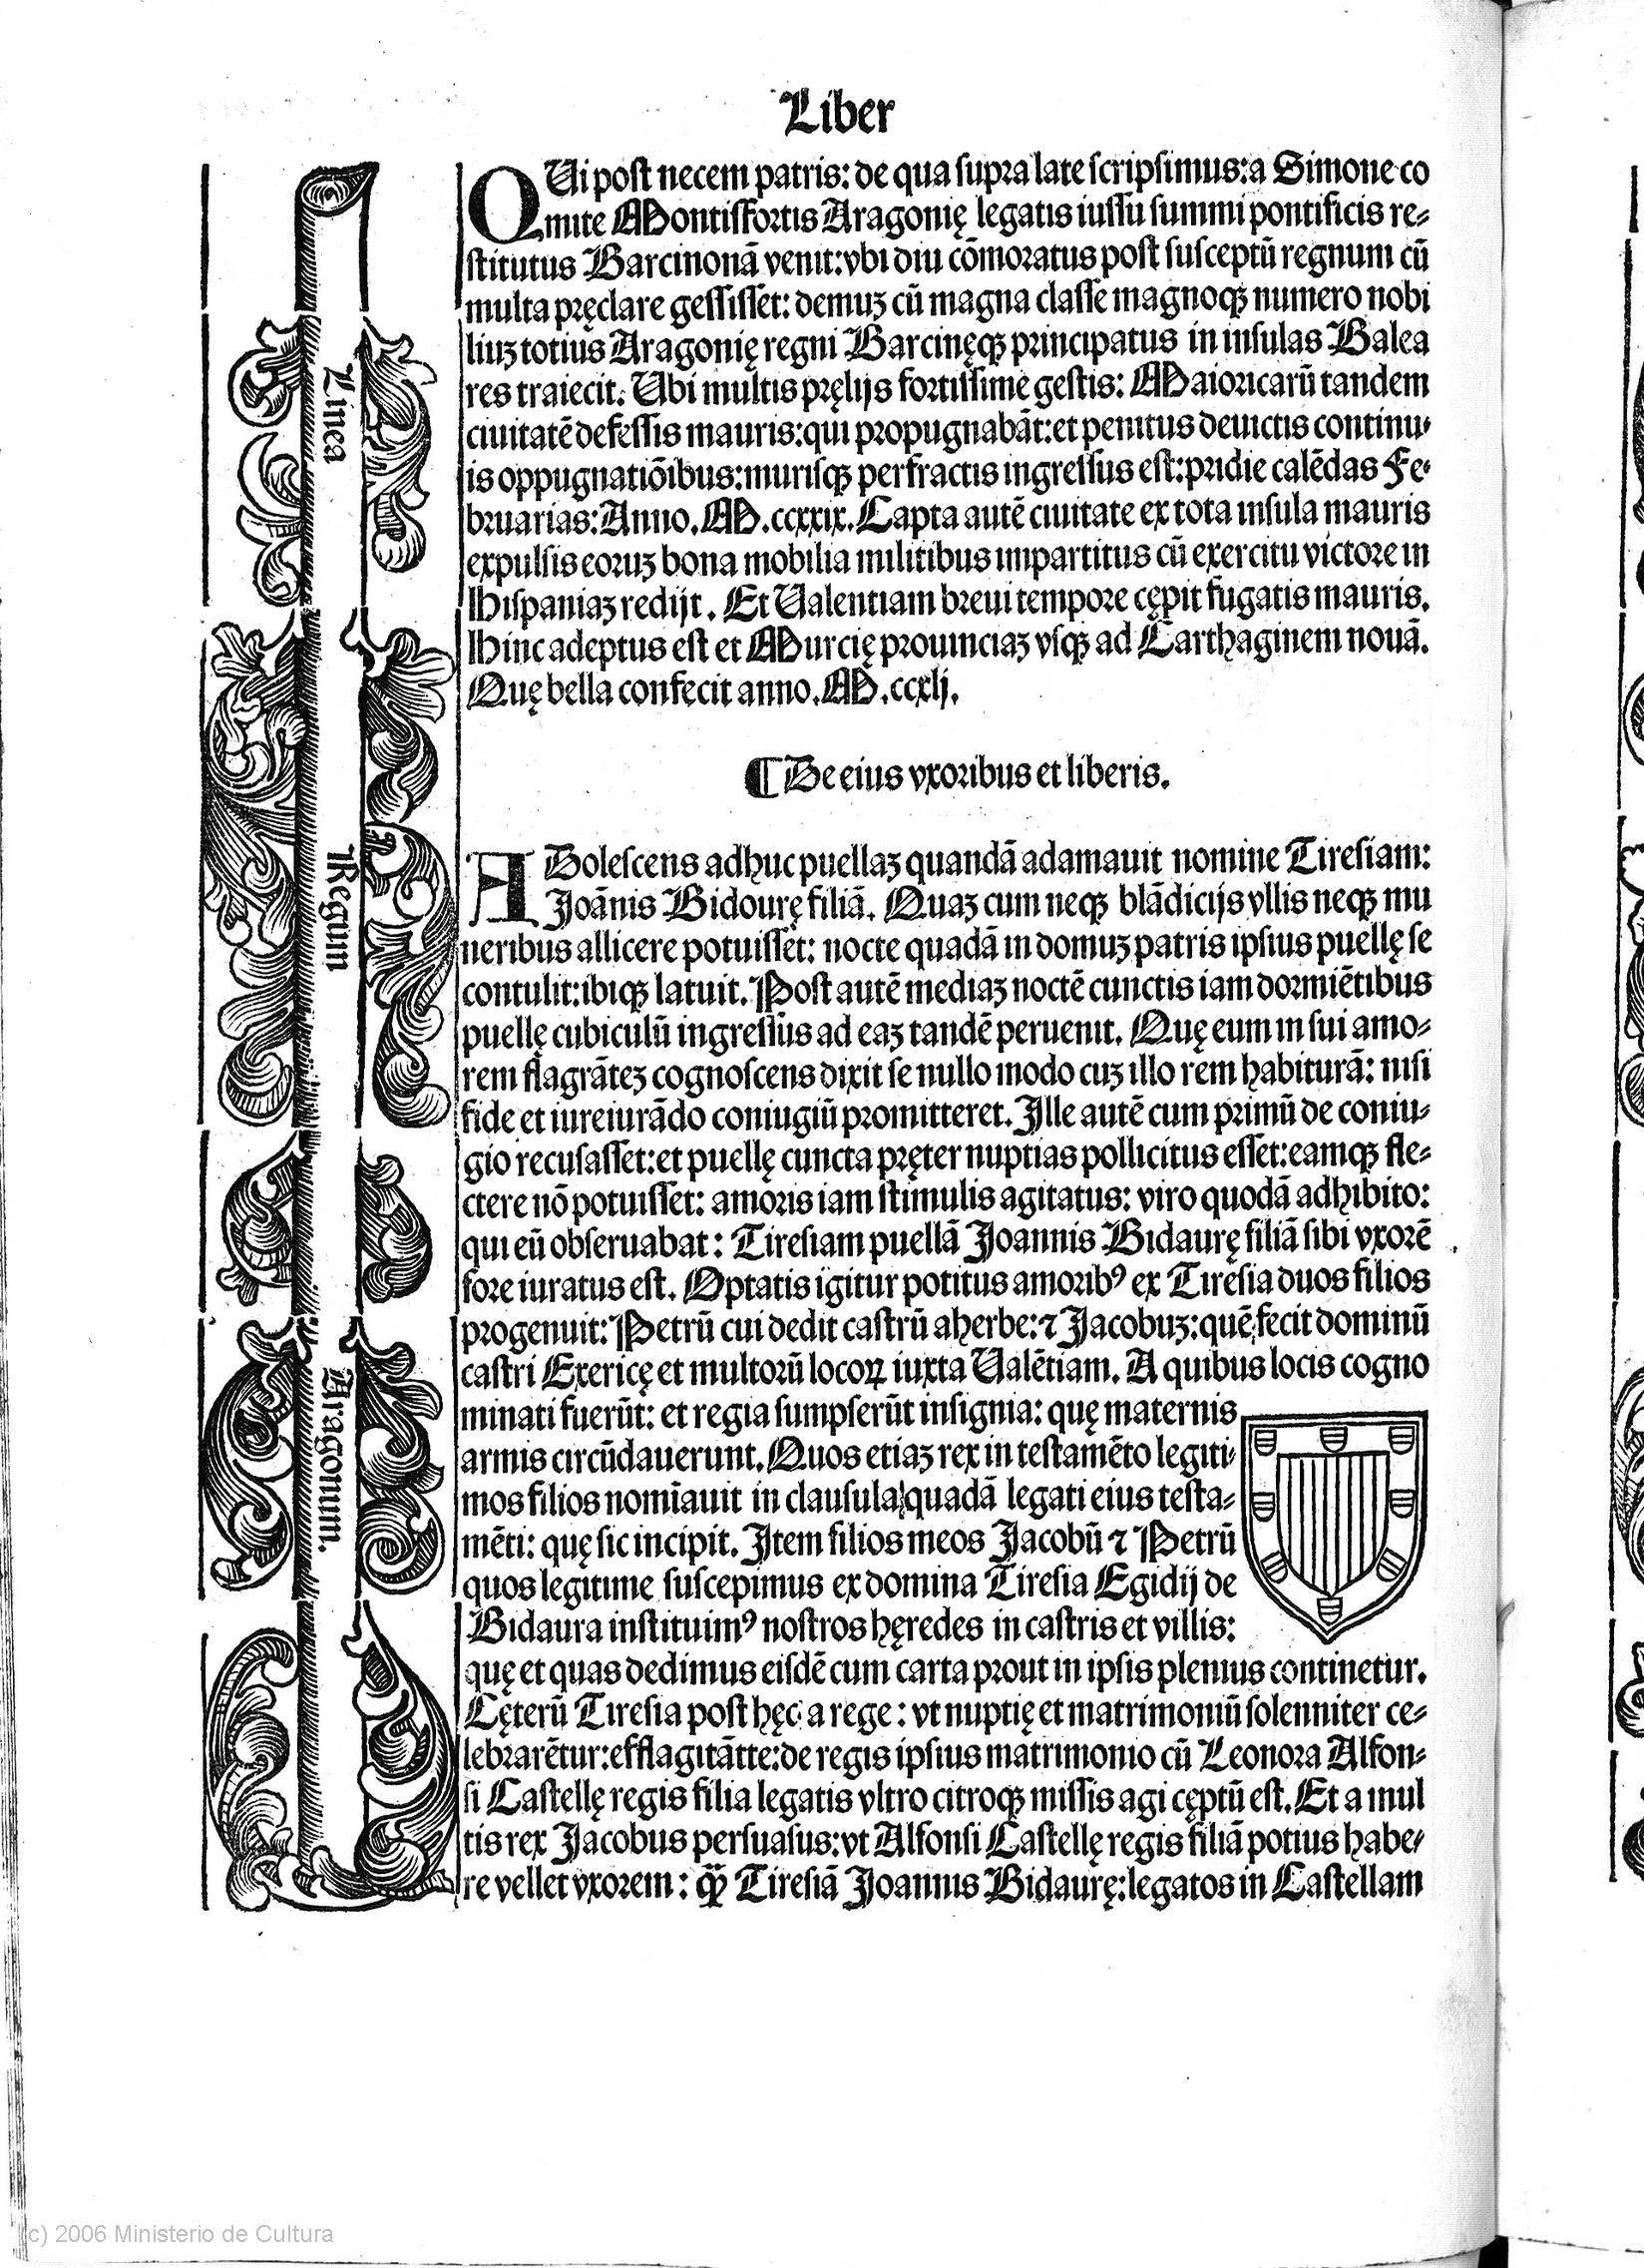 Liber
QUi post necem patris: de qua supra late scripsimus: a Simone co
mite Montisfortis Aragonię legatis iussu summi pontificis re=
stitutus Barcinonã venit: vbi diu cõmoratus post susceptũ regnum cũ
multa pręclare gessisset: demuȝ cũ magna classe magnoqꝫ numero nobi
liuȝ totius Aragonię regni Barcinęqꝫ principatus in insulas Balea
res traiecit. Ubi multis pręlijs fortissime gestis: Maioricarũ tandem
ciuitatẽ defessis mauris: qui propugnabãt: et penitus deuictis continu=
is oppugnatiõibus: murisqꝫ perfractis ingressus est: pridie calẽdas Fe=
bruarias: Anno. M.ccxxix. Capta autẽ ciuitate ex tota insula mauris
expulsis eoruȝ bona mobilia militibus impartitus cũ exercitu victore in
Hispaniaȝ redijt. Et Ualentiam breui tempore cępit fugatis mauris.
Hinc adeptus est et Murcię prouinciaȝ vsqꝫ ad Carthaginem nouã.
Quę bella confecit anno. M.ccxlj.
¶ De eius vxoribus et liberis.
ADolescens adhuc puellaȝ quandã adamauit nomine Tiresiam:
Joãnis Bidourę filiã. Quaȝ cum neqꝫ blãdicijs vllis neqꝫ mu
neribus allicere potuisset: nocte quadã in domuȝ patris ipsius puellę se
contulit: ibiqꝫ latuit. Post autẽ mediaȝ noctẽ cunctis iam dormiẽtibus
puellę cubiculũ ingressus ad eaȝ tandẽ peruenit. Quę eum in sui amo=
rem flagrãteȝ cognoscens dixit se nullo modo cuȝ illo rem habiturã: nisi
fide et iureiurãdo coniugiũ promitteret. Ille autẽ cum primũ de coniu=
gio recusasset: et puellę cuncta pręter nuptias pollicitus esset: eamqꝫ fle=
ctere nõ potuisset: amoris iam stimulis agitatus: viro quodã adhibito:
qui eũ obseruabat: Tiresiam puellã Joannis Bidaurę filiã sibi vxorẽ
fore iuratus est. Optatis igitur potitus amoribꝰ ex Tiresia duos filios
progenuit: Petrũ cui dedit castrũ aherbe: ⁊ Jacobuȝ: quẽ fecit dominũ
castri Exericę et multorũ locoꝝ iuxta Ualẽtiam. A quibus locis cogno
minati fuerũt: et regia sumpserũt insignia: quę maternis
armis circũdauerunt. Quos etiaȝ rex in testamẽto legiti=
mos filios nomĩauit in clausula quadã legati eius testa=
mẽti: quę sic incipit. Item filios meos Jacobũ ⁊ Petrũ
quos legitime suscepimus ex domina Tiresia Egidij de
Bidaura instituimꝰ nostros hęredes in castris et villis:
quę et quas dedimus eisdẽ cum carta prout in ipsis plenius continetur.
Cęterũ Tiresia post hęc a rege: vt nuptię et matrimoniũ solenniter ce=
lebrarẽtur: efflagitãtte: de regis ipsius matrimonio cũ Leonora Alfon=
si Castellę regis filia legatis vltro citroqꝫ missis agi cęptũ est. Et a mul
tis rex Jacobus persuasus: vt Alfonsi Castellę regis filiã potius habe=
re vellet vxorem: qꝫ̃ Tiresiã Joannis Bidaurę: legatos in Castellam
Linea
Regum
Aragonum.
(c) 2006 Ministerio de Cultura